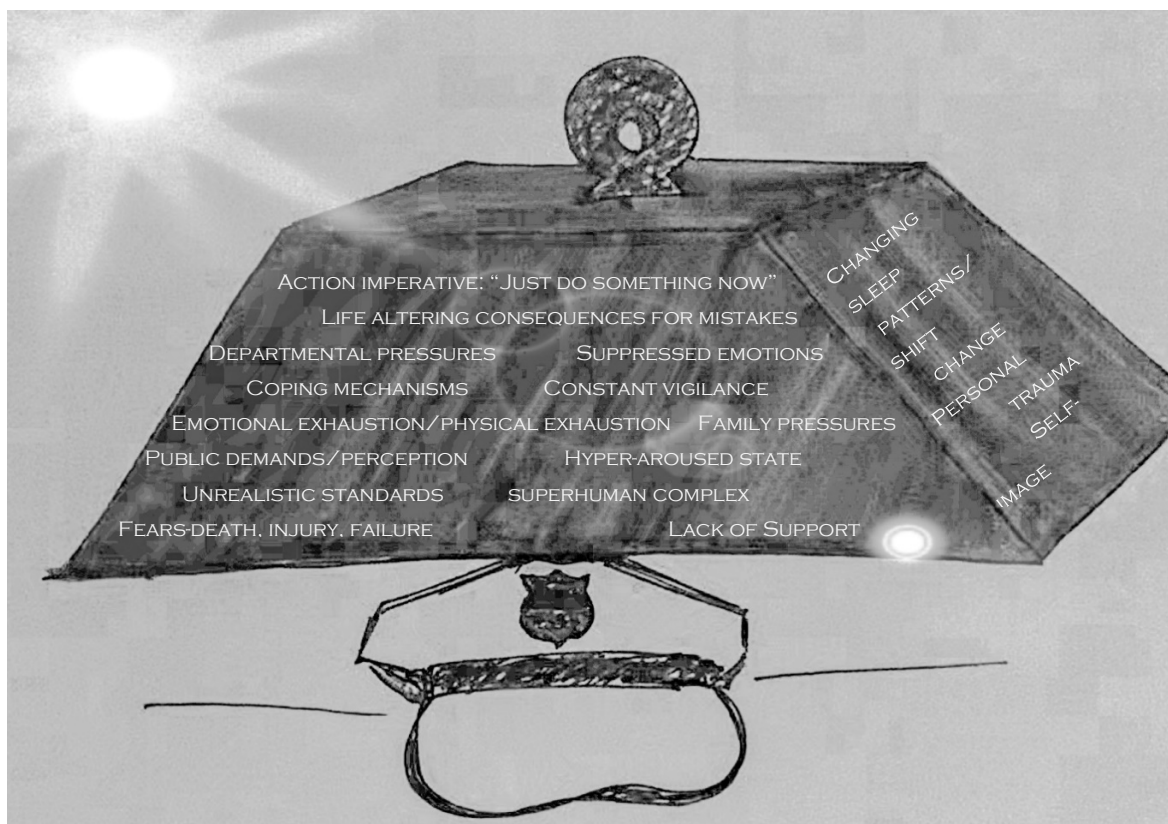 Action imperative: “Just do something now”
Life altering consequences for mistakes
Departmental pressures Suppressed emotions
Coping mechanisms Constant vigilance
Emotional exhaustion/physical exhaustion Family pressures
Public demands/perception Hyper-aroused state
Unrealistic standards superhuman complex
Fears-death, injury, failure Lack of Support
Changing
sleep
patterns/
shift
change
Personal
trauma
Self-
image